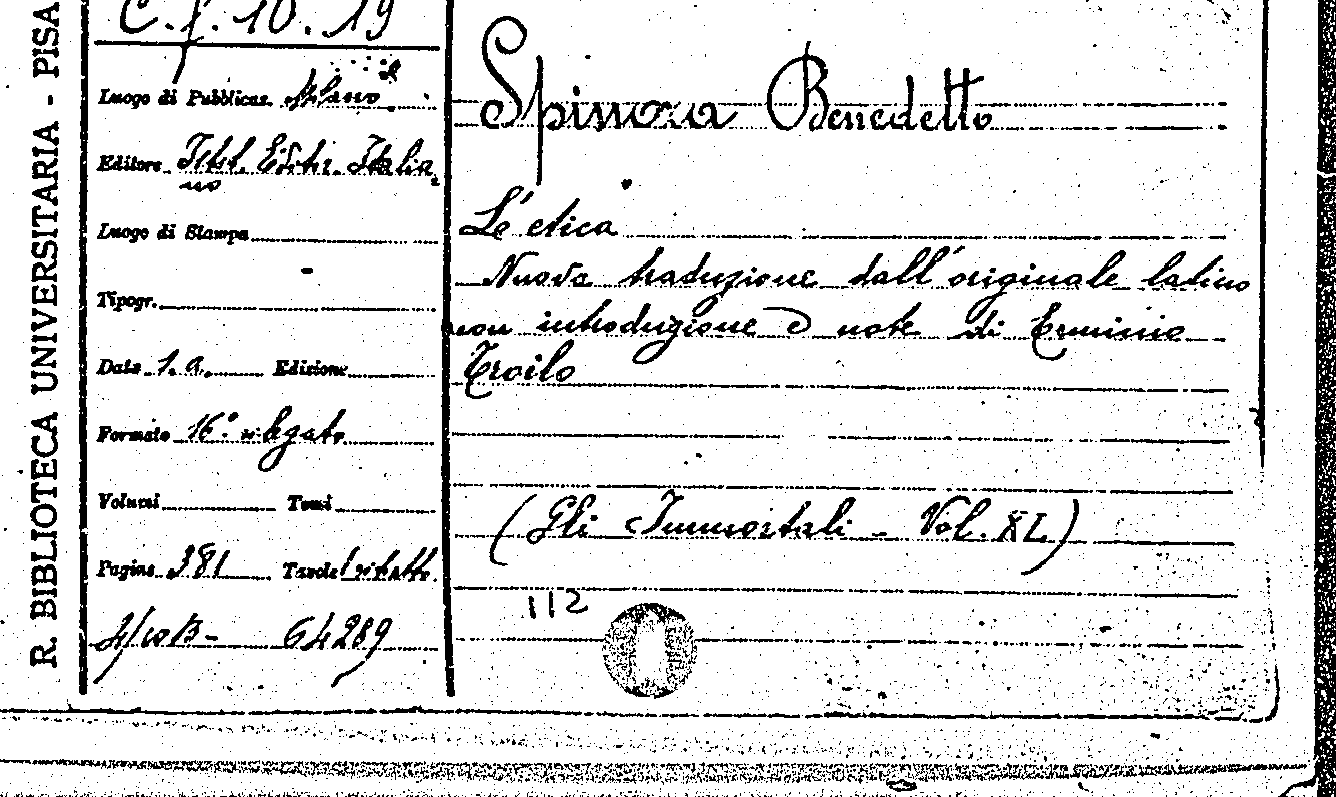 R. BIBLIOTECA UNIVERSITARIA - PISA
C.f. 10. 19
Luogo di Pubblicaz. Milano
Editore Istit. Editor. Italia
no
Luogo di Stampa
Tipogr.
Data s.a. Edizione
Formato 16° rilegato
Volumi Tomi
Pagine 381 Tavole 1 ritratto
64289
Spinoza Benedetto
L'etica
Nuova traduzione dall'originale latino
con introduzione e note di Erminio
Troilo
(Gli Immortali - Vol. XL)
112